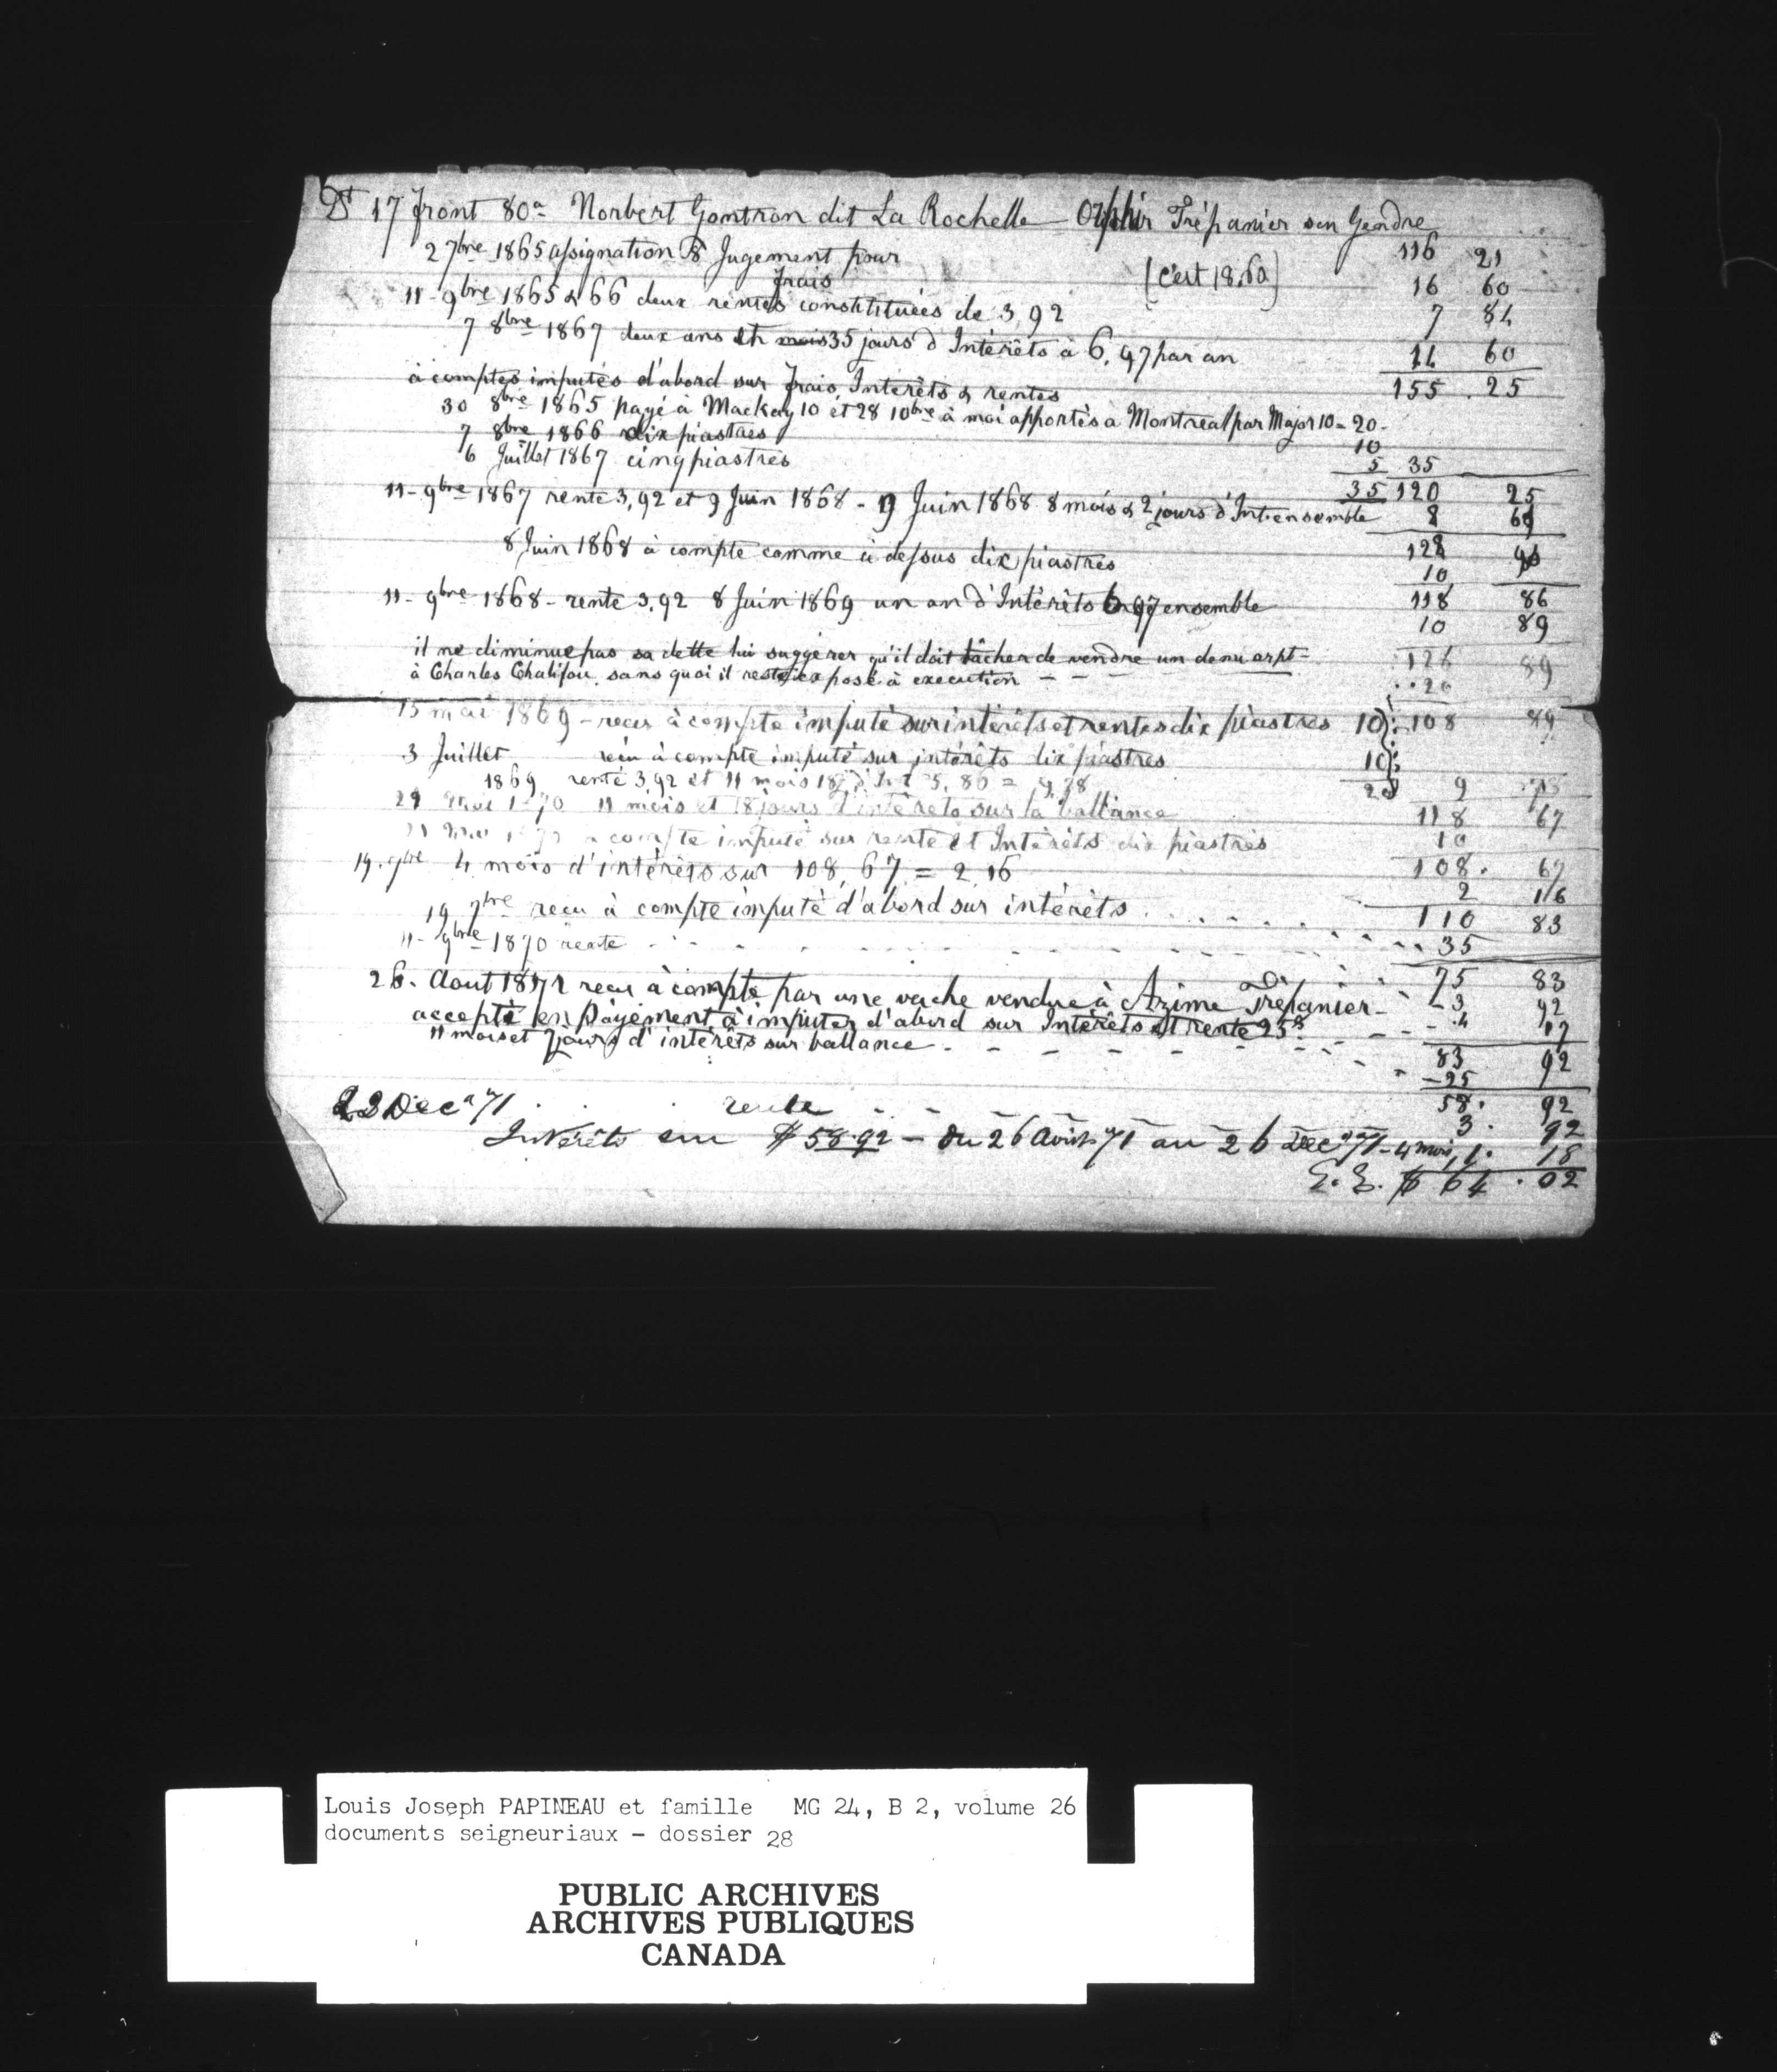 Dt 17 front 80a Norbert Gontran dit La Rochelle Trépanier son Gendre
2 7bre 1865 assignation & Jugement pour 116 21
frais (c'est 18.60) 16 60
11 - 9bre 1865 & 66 deux rentes constituées de 3,92 7 84
7 8bre 1867 deux ans et 35 jours d'Intérêts à 6,97 par an 14 60
155.25
à comptes imputés d'abord sur frais, Intérêts & rentes
30 8bre 1865 payé à Mackay 10 et 28 10bre à moi apportés à Montreal par Major 10 = 20 -
7 8bre 1866 dix piastres 10
6 Juillet 1867 cinq piastres 5 35
35 120 25
11 - 9bre 1867 rente 3,92 et 9 Juin 1868 - 9 Juin 1868 8 mois & 2 jours d'Int. ensemble 8 61
128
8 Juin 1868 à compte comme ci dessus dix piastres 10
118 86
11 - 9bre 1868 - rente 3,92 8 Juin 1869 un an d'Intérêts 6,97 ensemble 10 89
il ne diminue pas sa dette lui suggérer qu'il doit tâcher de vendre un demi arpt
à Charles Chalifou, sans quoi il reste exposé à execution - - -
126 89
20
15 mai 1869 - reçu à compte imputé sur intérêts et rentes dix piastres 10 108 89
3 Juillet reçu à compte imputé sur intérêts dix piastres 10
20
1869 rente 3,92 et 11 mois 18 j. d'Int 5,86 = 9,78 9 78
29 mai 1870 11 mois et 18 jours d'intérêts sur la ballance 118 67
à compte imputé sur rente et Intérêts dix piastres 10
108. 67
19. 7bre 4 mois d'intérêts sur 108,67 = 2,16 2 16
110 83
19 7bre reçu à compte imputé d'abord sur intérêts 35
75 83
11 - 9bre 1870 rente 3 92
26. Aout 1871 reçu à compte par une vache vendue à Azime Trépanier
accepté en Payement à imputer d'abord sur Intérêts et rente 25$
11 mois et 7 jours d'intérêts sur ballance 4 17
83 92
-25
58. 92
23 Decr 71 rente 3. 92
Intérêts sur $58.92 - du 26 Août 71 au 26 Decr 71 - 4 mois 1. 18
E. E. $ 64.02
Louis Joseph PAPINEAU et famille MG 24, B 2, volume 26
documents seigneuriaux - dossier 28
PUBLIC ARCHIVES
ARCHIVES PUBLIQUES
CANADA